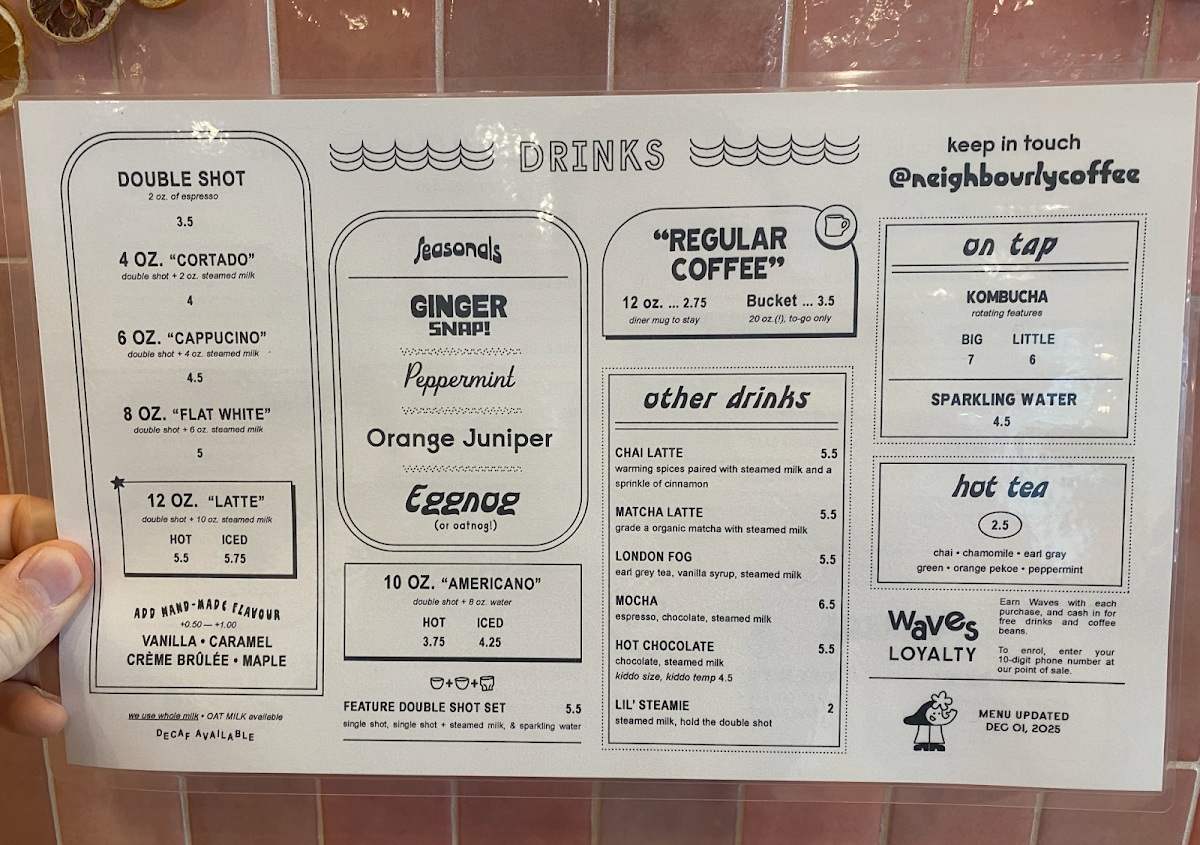 DRINKS
DOUBLE SHOT
2 oz. of espresso
3.5
4 OZ. “CORTADO”
double shot + 2 oz. steamed milk
4
6 OZ. “CAPPUCINO”
double shot + 4 oz. steamed milk
4.5
8 OZ. “FLAT WHITE”
double shot + 6 oz. steamed milk
5
12 OZ. “LATTE”
double shot + 10 oz. steamed milk
HOT ICED
5.5 5.75
ADD HAND-MADE FLAVOUR
+0.50 — +1.00
VANILLA • CARAMEL
CRÈME BRÛLÉE • MAPLE
we use whole milk • OAT MILK available
DECAF AVAILABLE
seasonals
GINGER
SNAP!
Peppermint
Orange Juniper
Eggnog
(or oatnog!)
10 OZ. “AMERICANO”
double shot + 8 oz. water
HOT ICED
3.75 4.25
FEATURE DOUBLE SHOT SET 5.5
single shot, single shot + steamed milk, & sparkling water
“REGULAR
COFFEE”
12 oz. ... 2.75 Bucket ... 3.5
diner mug to stay 20 oz.(!), to-go only
other drinks
CHAI LATTE 5.5
warming spices paired with steamed milk and a
sprinkle of cinnamon
MATCHA LATTE 5.5
grade a organic matcha with steamed milk
LONDON FOG 5.5
earl grey tea, vanilla syrup, steamed milk
MOCHA 6.5
espresso, chocolate, steamed milk
HOT CHOCOLATE 5.5
chocolate, steamed milk
kiddo size, kiddo temp 4.5
LIL' STEAMIE 2
steamed milk, hold the double shot
keep in touch
@neighbourlycoffee
on tap
KOMBUCHA
rotating features
BIG LITTLE
7 6
SPARKLING WATER
4.5
hot tea
2.5
chai • chamomile • earl gray
green • orange pekoe • peppermint
Waves
LOYALTY
Earn Waves with each
purchase, and cash in for
free drinks and coffee
beans.
To enrol, enter your
10-digit phone number at
our point of sale.
MENU UPDATED
DEC 01, 2025